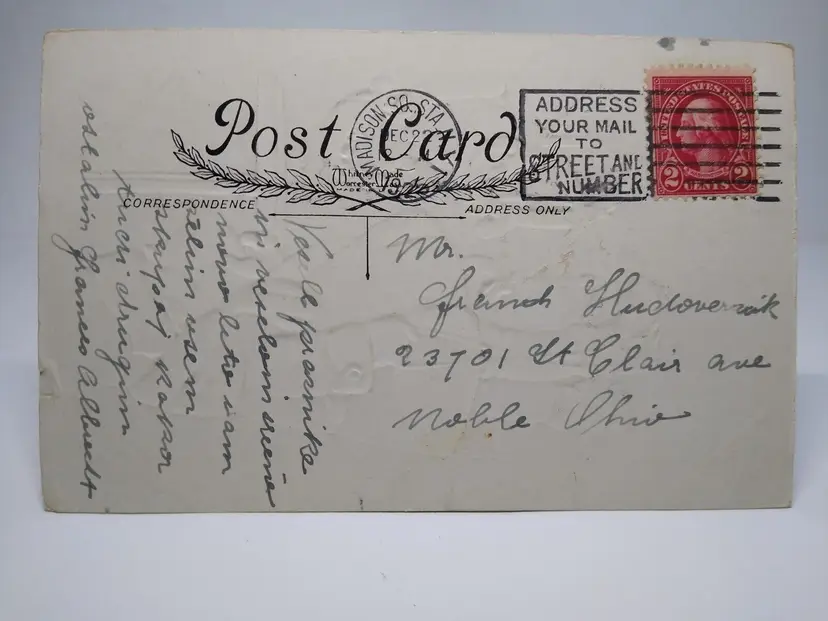 Post Card
MADISON SQ. STA.
DEC 22
ADDRESS
YOUR MAIL
TO
STREET AND
NUMBER
UNITED STATES POSTAGE
2 CENTS 2
Whitney Made
Worcester, Mass
CORRESPONDENCE
ADDRESS ONLY
Mr.
Frank Hudovernik
23701 St Clair ave
Noble Ohio
Vesele praznike
in veselo
novo leto vam
želim vsem
skupaj kakor
tudi drugim
ostalim Frances Albrecht